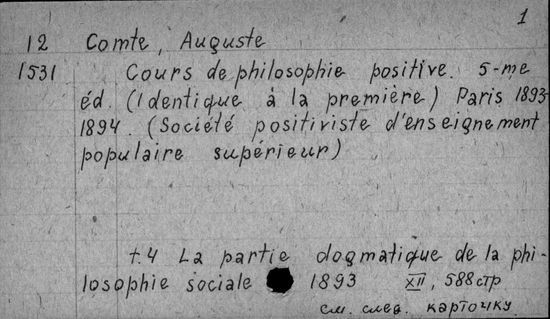 1
12 Comte, Auguste
1531 Cours de philosophie positive. 5-me
éd. (Identique à la première) Paris 1893-
1894. (Société positiviste d'enseignement
populaire supérieur)
t.4 La partie dogmatique de la phi-
losophie sociale 1893 XII, 588 стр
см. след. карточку.